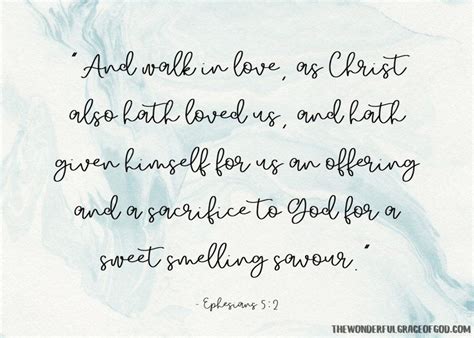 "And walk in love, as Christ
also hath loved us, and hath
given himself for us an offering
and a sacrifice to God for a
sweet smelling savour."
- Ephesians 5:2
THEWONDERFULGRACEOFGOD.COM